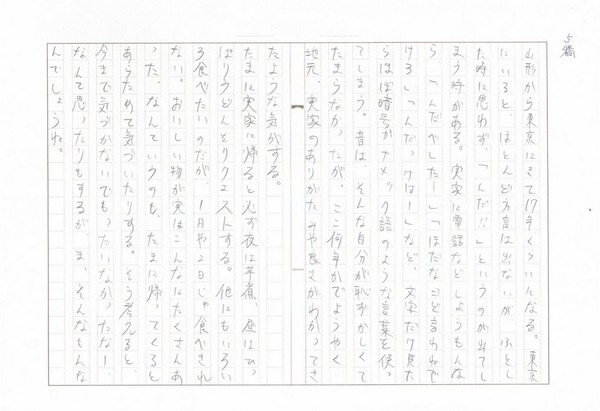 5稿
山形から東京にきて17年くらいになる。東京
にいると、ほとんど方言は出ないが、ふとし
た時に思わず、「んだ!!」というのが出てし
まう時がある。実家に電話などしようもんな
ら「んだべしたー」「ほだなごど言わねで
けろ」「んだっけはー」など、文字だけ見た
らほぼ暗号かナメック語のような言葉を使っ
てしまう。昔は、そんな自分が恥ずかしくて
たまらなかったが、ここ何年かでようやく、
地元、実家のありがたみや良さがわかってき
たような気がする。
たまに実家に帰ると必ず夜は芋煮、昼はひっ
ぱりうどんをリクエストする。他にもいろい
ろ食べたいのだが、1日や2日じゃ食べきれ
ない。おいしい物が実はこんなにたくさんあ
った、なんていうのも、たまに帰ってくると
あらためて気づいたりする。そう考えると、
今まで気づかないでもったいなかったなー、
なんて思ったりもするが、ま、そんなもんな
んでしょうね。